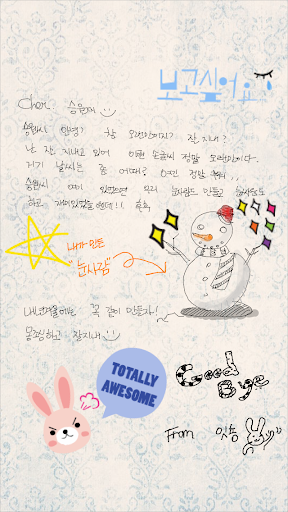 보고싶어요
Cher. 승원때
승원씨 안녕? 참 오랜만이지? 잘 지내?
난 잘 지내고 있어 이런 손글씨 정말 오랜만이다.
거기 날씨는 좀 어때? 여긴 정말 추워.
승원씨 여기 있었으면 우리 눈사람도 만들고 눈싸움도
하고 재미있었을텐데!! 흑흑
내가 만든
"눈사람"
내년겨울에는 꼭 같이 만들자!
몸평히하고 잘지내
TOTALLY
AWESOME
Good
Bye
From